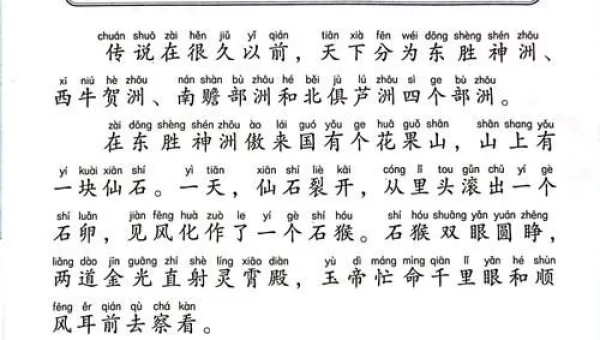 chuán shuō zài hěn jiǔ yǐ qián tiān xià fēn wéi dōng shèng shén zhōu
传说在很久以前，天下分为东胜神洲、
xī niú hè zhōu nán shàn bù zhōu hé běi jù lú zhōu sì ge bù zhōu
西牛贺洲、南赡部洲和北俱芦洲四个部洲。
zài dōng shèng shén zhōu ào lái guó yǒu ge huā guǒ shān shān shang yǒu
在东胜神洲傲来国有个花果山，山上有
yí kuài xiān shí yì tiān xiān shí liè kāi cóng lǐ tou gǔn chū yí gè
一块仙石。一天，仙石裂开，从里头滚出一个
shí luǎn jiàn fēng huà zuò le yí gè shí hóu shí hóu shuāng yǎn yuán zhēng
石卵，见风化作了一个石猴。石猴双眼圆睁，
liǎng dào jīn guāng zhí shè líng xiāo diàn yù dì máng mìng qiān lǐ yǎn hé shùn
两道金光直射灵霄殿，玉帝忙命千里眼和顺
fēng ěr qián qù chá kàn
风耳前去察看。